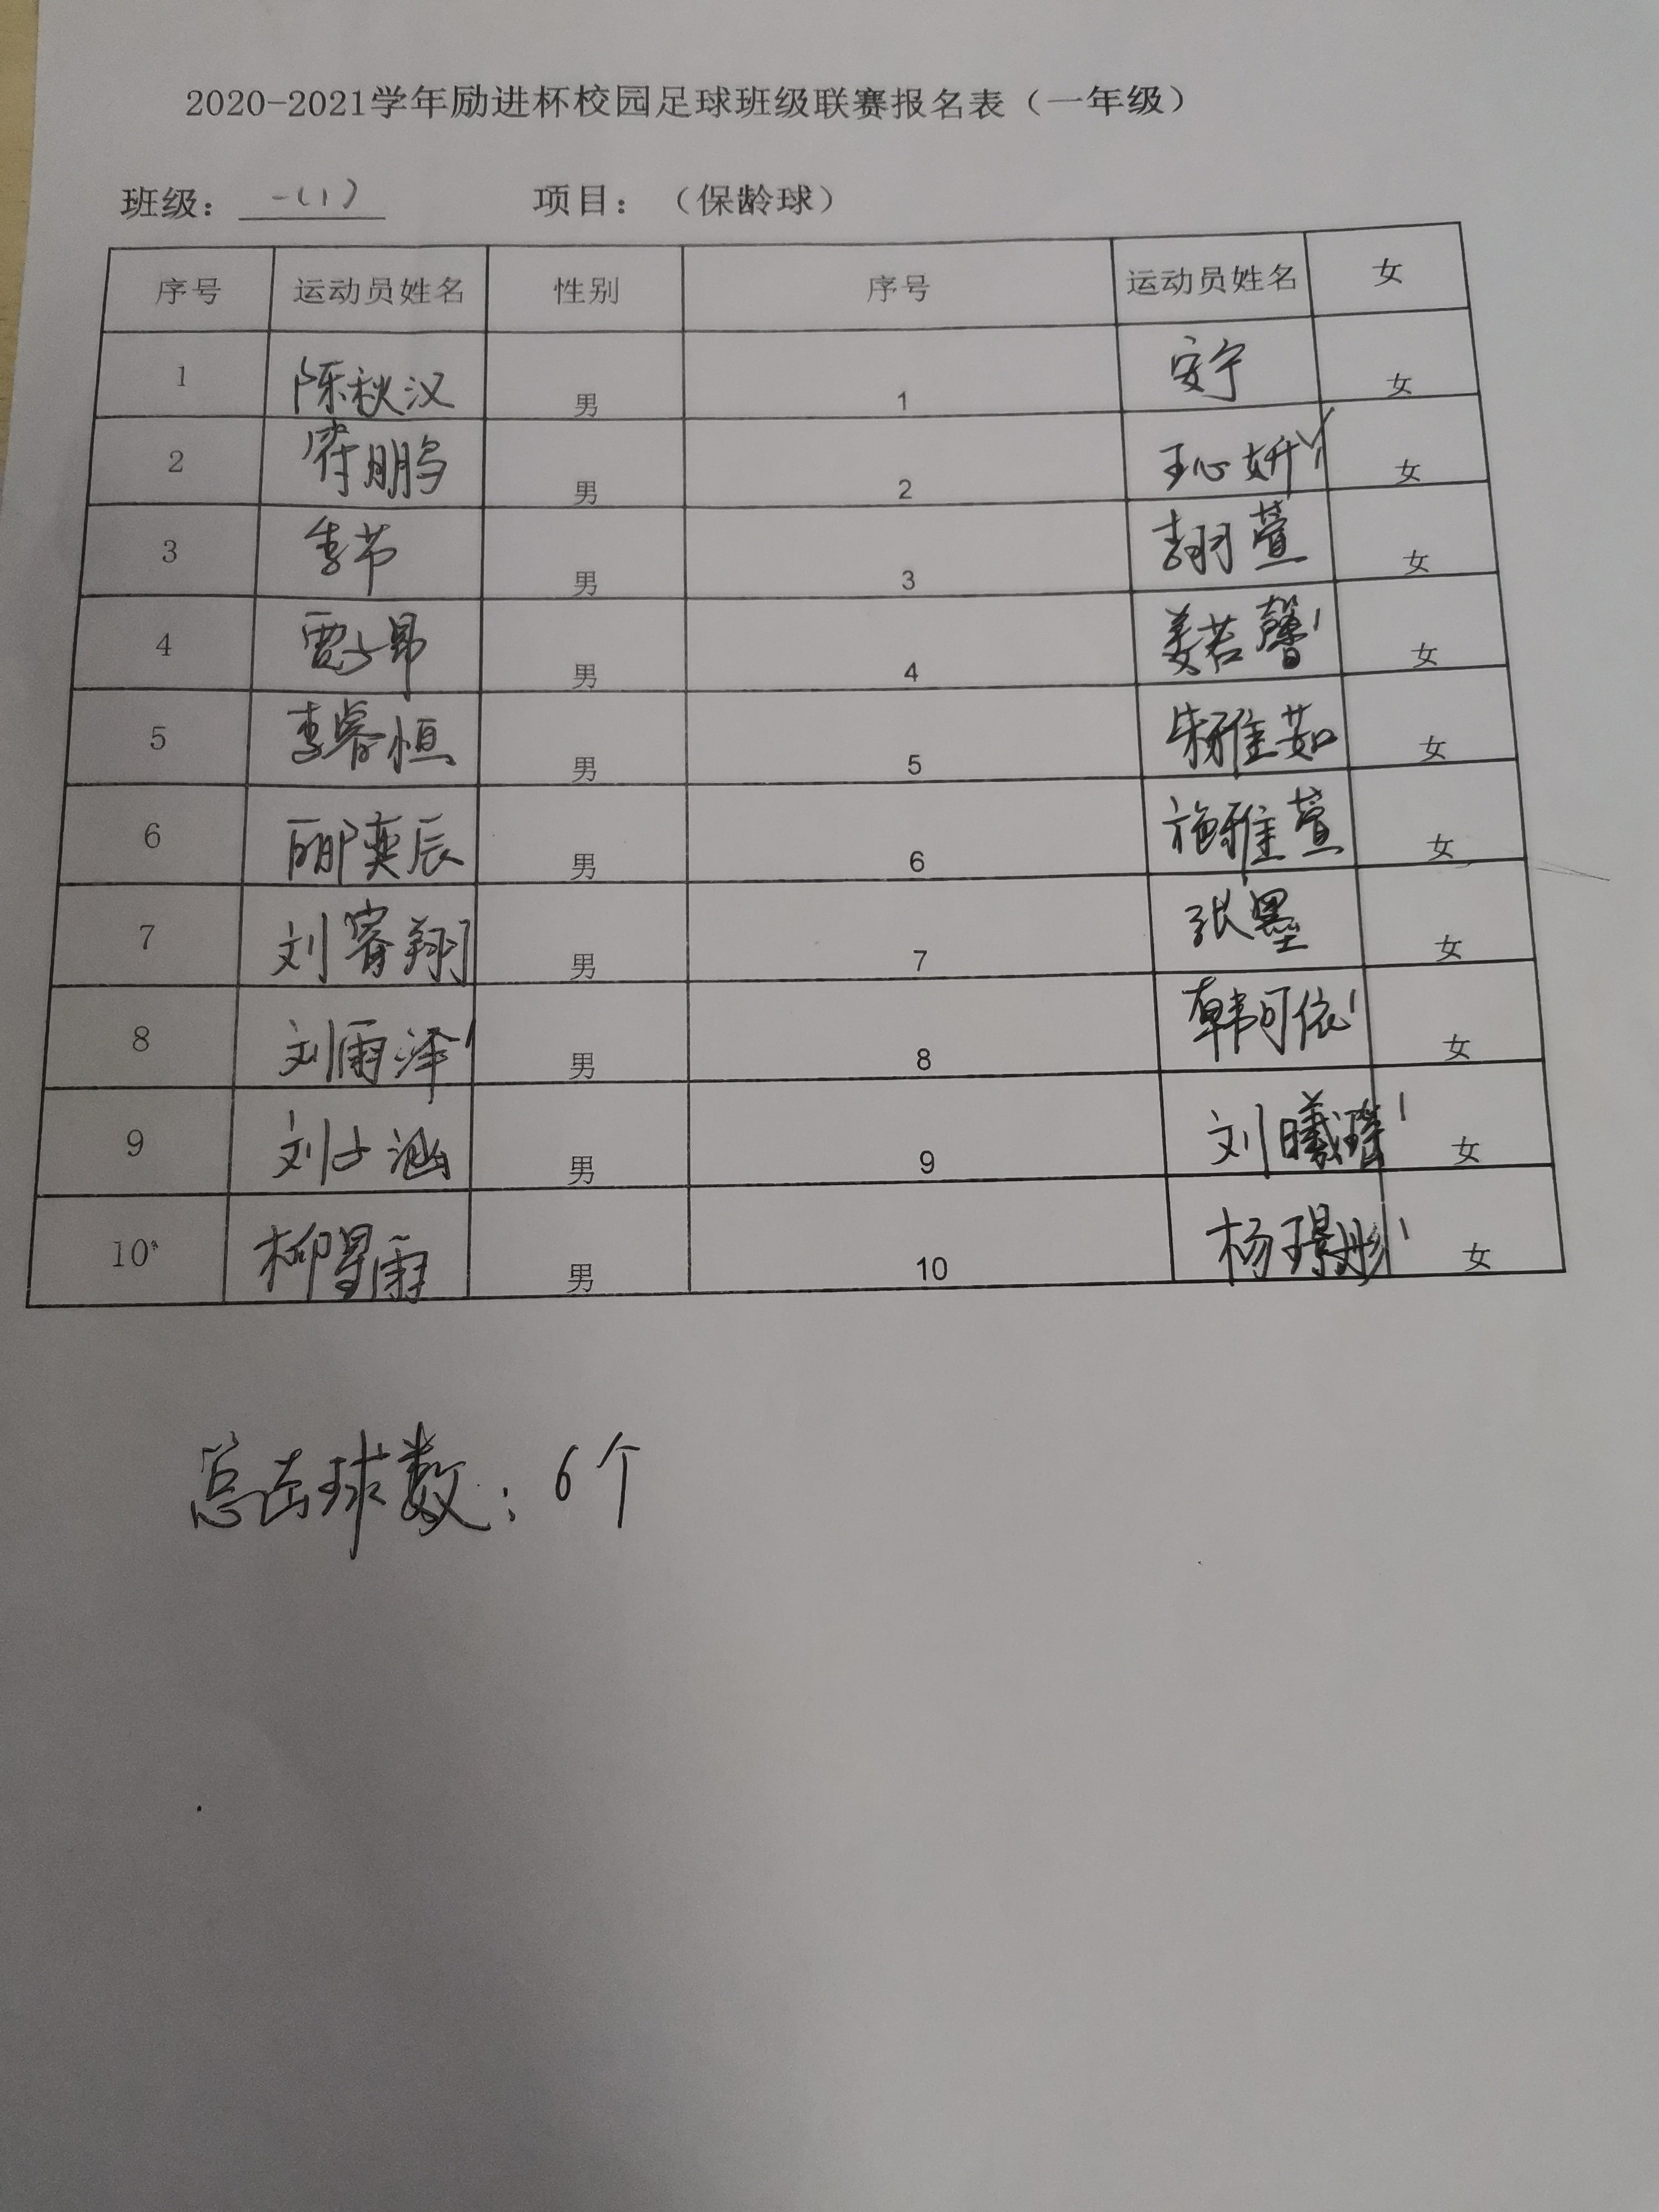 2020-2021学年励进杯校园足球班级联赛报名表（一年级）
班级：一(1) 项目：（保龄球）
序号 运动员姓名 性别 序号 运动员姓名 女
1 陈秋汉 男 1 安宁 女
2 符鹏 男 2 王心妍 女
3 季节 男 3 翊萱 女
4 贾子昂 男 4 姜若馨 女
5 李睿恒 男 5 朱雅茹 女
6 郦奕辰 男 6 施雅萱 女
7 刘睿翔 男 7 张墨 女
8 刘雨泽 男 8 韩可依 女
9 刘子涵 男 9 刘曦瑶 女
10 柳星雨 男 10 杨璟彤 女
总击球数：6个